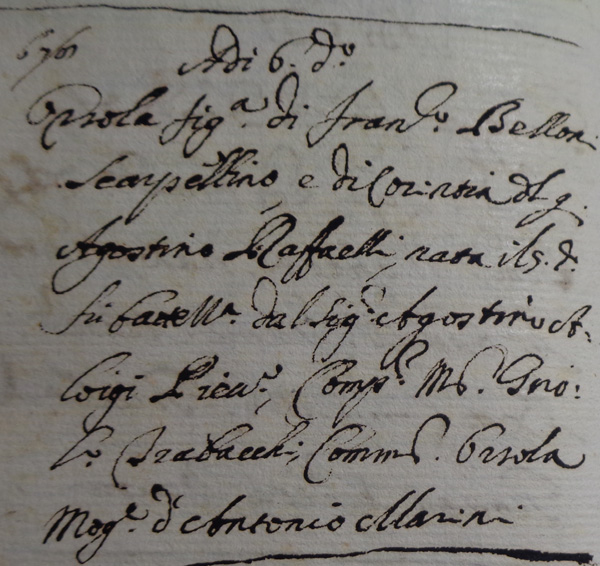 Adi 6. do
Orsola figa. di Franco. Belloni
Scarpellino, e di Corintia dl q.
Agostino Raffaelli, nata il 5. d.
fu battema. dal Sigr. Agostino A-
loigi Compr. Mo.
Trabacchi, Comme. Orsola
Moge. d' Antonio Marini